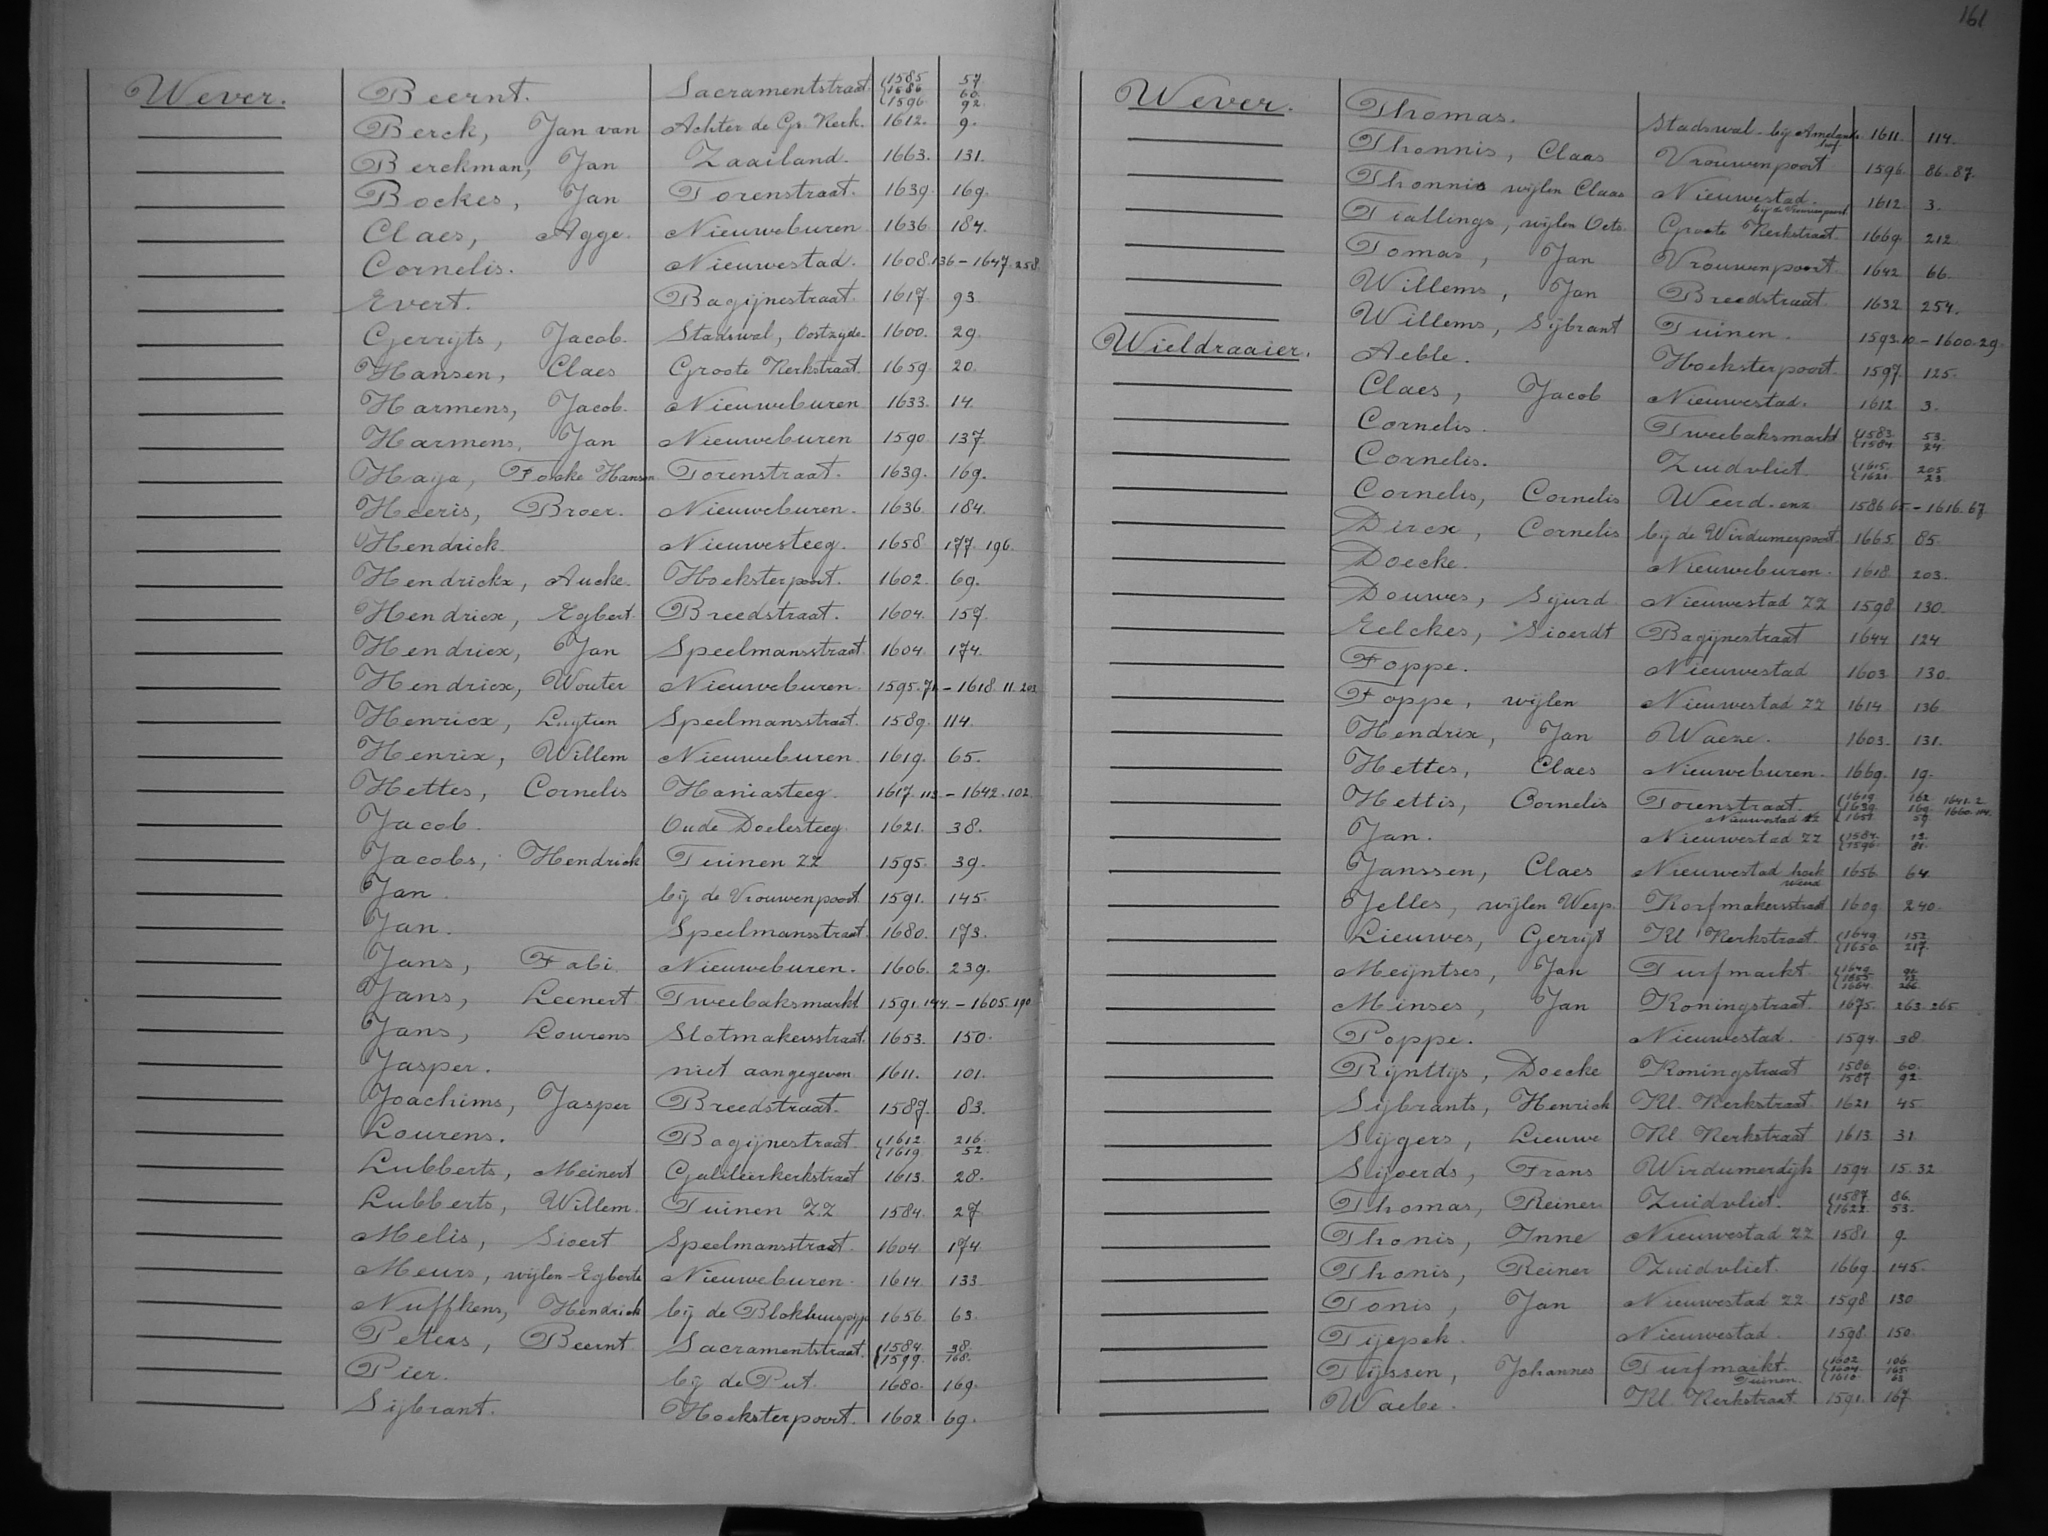 161
Wever. Beernt. Sacramentstraat. 1585 57.
1586 60.
1596 92.
Berck, Jan van Achter de Gr. Kerk. 1612. 9.
Berckman, Jan Zaailand. 1663. 131.
Bockes, Jan Torenstraat. 1639. 169.
Claes, Agge. Nieuweburen 1636. 184.
Cornelis. Nieuwestad. 1608.136 – 1647.258.
Evert. Bagijnestraat. 1617. 93.
Gerrijts, Jacob. Stadswal, Oostzyde. 1600. 29.
Hansen, Claes Groote Kerkstraat. 1659. 20.
Harmens, Jacob. Nieuweburen 1633. 14.
Harmens, Jan Nieuweburen 1590. 137.
Haija, Focke Hansen Torenstraat. 1639. 169.
Heeris, Broer. Nieuweburen. 1636. 184.
Hendrick. Nieuwesteeg. 1658 177. 196.
Hendrickx, Aucke. Hoeksterpoort. 1602. 69.
Hendricx, Egbert. Breedstraat. 1604. 157.
Hendricx, Jan Speelmansstraat. 1604. 174.
Hendricx, Wouter Nieuweburen. 1595.71. – 1618.11.203
Henricx, Luijtien Speelmansstraat. 1589. 114.
Henrix, Willem Nieuweburen. 1619. 65.
Hettes, Cornelis Haniasteeg. 1617.113. – 1642.102.
Jacob. Oude Doelesteeg. 1621. 38.
Jacobs, Hendrick Tuinen ZZ 1595. 39.
Jan. bij de Vrouwenpoort 1591. 145.
Jan. Speelmansstraat. 1680. 173.
Jans, Fabi. Nieuweburen. 1606. 239.
Jans, Leenert Tweebaksmarkt 1591.144. – 1605.190
Jans, Lourens Slotmakersstraat. 1653. 150.
Jasper. niet aangegeven 1611. 101.
Joachims, Jasper Breedstraat. 1587. 83.
Lourens. Bagijnestraat. 1612 216.
1619. 52.
Lubberts, Meinert Galileërkerkstraat 1613. 28.
Lubberts, Willem. Tuinen Z.Z 1584. 27.
Melis, Sioert Speelmansstraat. 1604. 174.
Meurs, wijlen Egberts Nieuweburen. 1614. 133.
Nuffkens, Hendrick bij de Blokhuispijp 1656. 63.
Peters, Beernt Sacramentstraat. 1584. 38.
1599. 168.
Pier. bij de Put. 1680. 169.
Sijbrant. Hoeksterpoort. 1602. 69.
Wever. Thomas. Stadswal bij Amelands hof. 1611. 114.
Thonnis, Claas Vrouwenpoort 1596. 86. 87.
Thonnis wijlen Claas Nieuwestad. bij de Vrouwenpoort 1612. 3.
Tiallings, wijlen Oets. Groote Kerkstraat. 1669. 212.
Tomas, Jan Vrouwenpoort. 1642. 66.
Willems, Jan Breedstraat. 1632 254.
Willems, Sijbrant Tuinen. 1593.10 – 1600.29.
Wieldraaier. Aeble. Hoeksterpoort. 1597. 125.
Claes, Jacob Nieuwestad. 1612. 3.
Cornelis. Tweebaksmarkt 1583. 53.
1584 24.
Cornelis. Zuidvliet. 1615. 205
1621. 23.
Cornelis, Cornelis Weerd. enz 1586.65 – 1616.67.
Dircx, Cornelis bij de Wirdumerpoort. 1665. 85.
Doecke. Nieuweburen. 1618. 203.
Douwes, Sijurd Nieuwestad ZZ 1598 130.
Eelckes, Sioerdt Bagijnestraat 1644 124
Foppe. Nieuwestad 1603. 130.
Foppe, wijlen Nieuwestad ZZ 1614 136
Hendrix, Jan Waeze. 1603. 131.
Hettes, Claes Nieuweburen. 1669. 19.
Hettis, Cornelis Torenstraat. 1619. 162 1641. 2.
1639. 169. 1660.
Nieuwestad 1651. 59.
Jan. Nieuwestad ZZ 1584. 12.
1596. 81.
Janssen, Claes Nieuwestad hoek Weerd 1656. 64.
Jelles, wijlen Weyp. Korfmakersstraat 1609 240.
Lieuwes, Gerrijt Kl. Kerkstraat. 1649 152
1650. 217.
Meijntses, Jan Turfmarkt. 1664. 266.
Minses, Jan Koningstraat. 1675. 263. 265.
Poppe. Nieuwestad. 1594. 38.
Rijnttijs, Doecke Koningstraat 1586. 60.
1587. 92.
Sijbrants, Henrick Kl. Kerkstraat. 1621 45.
Sijgers, Lieuwe Kl. Kerkstraat 1613. 31.
Sijoerds, Frans Wirdumerdijk 1594. 15. 32.
Thomas, Reiner Zuidvliet. 1587. 86.
1622. 53.
Thonis, Inne Nieuwestad ZZ 1581. 9.
Thonis, Reiner Zuidvliet. 1669. 145.
Tonis, Jan Nieuwestad ZZ 1598 130
Tijepck. Nieuwestad. 1598. 150.
Tijssen, Johannes Turfmarkt. 1602 106.
1604. 165.
Tuinen. 1610. 63
Waebe. Kl. Kerkstraat. 1591. 167.